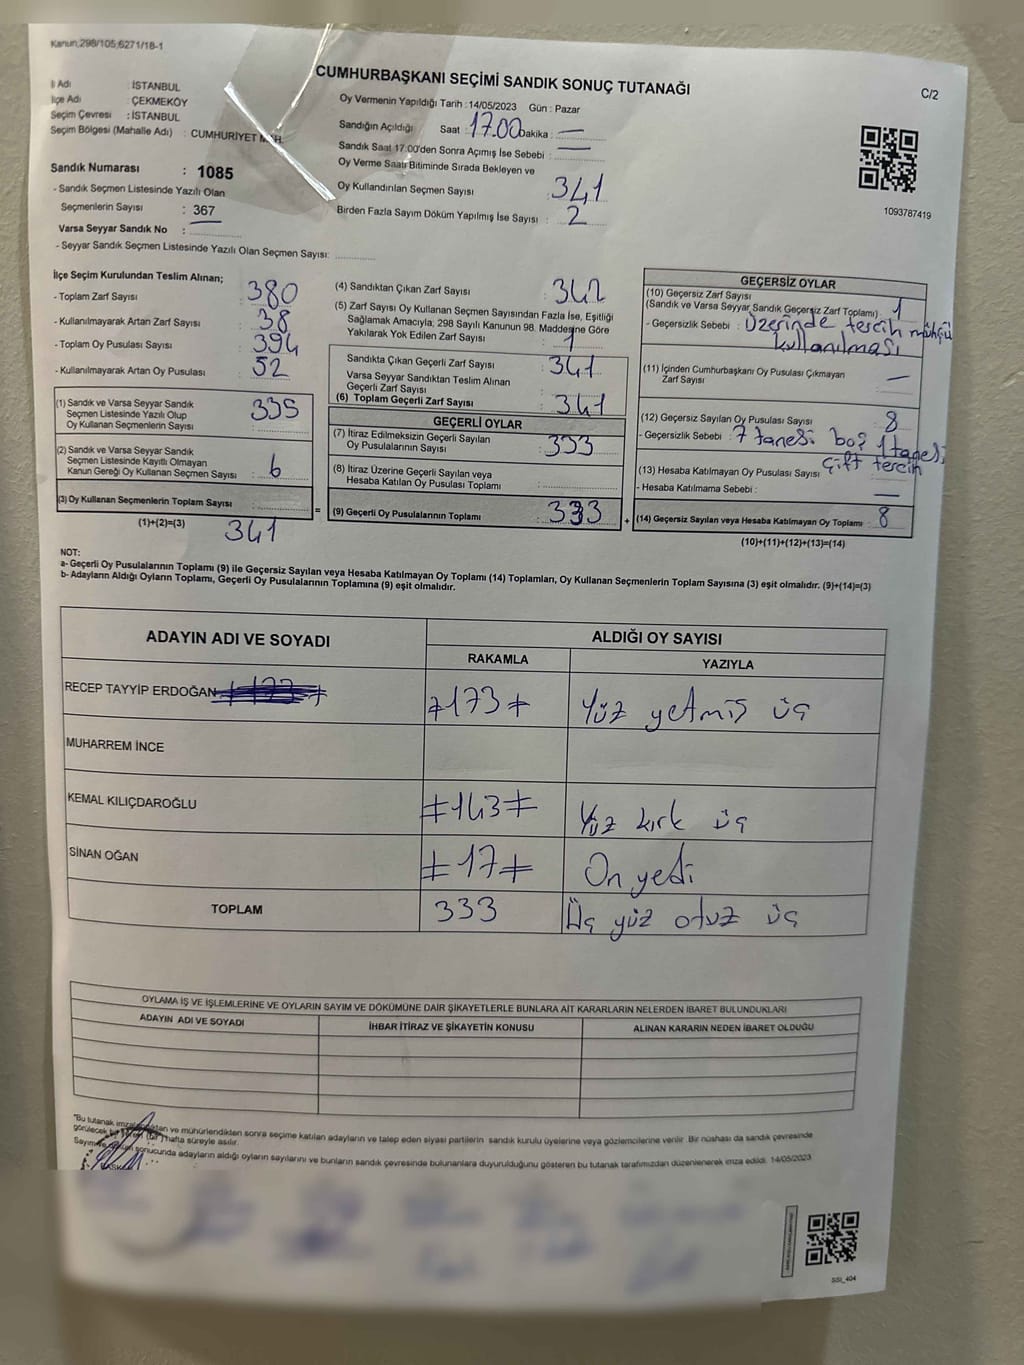 Kanun;298/105;6271/18-1
CUMHURBAŞKANI SEÇİMİ SANDIK SONUÇ TUTANAĞI
C/2
İl Adı : İSTANBUL
İlçe Adı : ÇEKMEKÖY
Seçim Çevresi : İSTANBUL
Seçim Bölgesi (Mahalle Adı) : CUMHURİYET MAH.
Sandık Numarası : 1085
- Sandık Seçmen Listesinde Yazılı Olan
Seçmenlerin Sayısı : 367
Varsa Seyyar Sandık No :
- Seyyar Sandık Seçmen Listesinde Yazılı Olan Seçmen Sayısı:
Oy Vermenin Yapıldığı Tarih :14/05/2023 Gün : Pazar
Sandığın Açıldığı Saat : 17.00 Dakika : —
Sandık Saat 17.00'den Sonra Açımış İse Sebebi : —
Oy Verme Saati Bitiminde Sırada Bekleyen ve
Oy Kullandırılan Seçmen Sayısı : 341
Birden Fazla Sayım Döküm Yapılmış İse Sayısı : 2
1093787419
İlçe Seçim Kurulundan Teslim Alınan;
- Toplam Zarf Sayısı : 380
- Kullanılmayarak Artan Zarf Sayısı : 38
- Toplam Oy Pusulası Sayısı : 394
- Kullanılmayarak Artan Oy Pusulası : 52
(1) Sandık ve Varsa Seyyar Sandık
Seçmen Listesinde Yazılı Olup
Oy Kullanan Seçmenlerin Sayısı : 335
(2) Sandık ve Varsa Seyyar Sandık
Seçmen Listesinde Kayıtlı Olmayan
Kanun Gereği Oy Kullanan Seçmen Sayısı : 6
(3) Oy Kullanan Seçmenlerin Toplam Sayısı :
(1)+(2)=(3) 341
(4) Sandıktan Çıkan Zarf Sayısı : 342
(5) Zarf Sayısı Oy Kullanan Seçmen Sayısından Fazla İse, Eşitliği
Sağlamak Amacıyla, 298 Sayılı Kanunun 98. Maddesine Göre
Yakılarak Yok Edilen Zarf Sayısı : 1
Sandıkta Çıkan Geçerli Zarf Sayısı : 341
Varsa Seyyar Sandıktan Teslim Alınan
Geçerli Zarf Sayısı :
(6) Toplam Geçerli Zarf Sayısı : 341
GEÇERLİ OYLAR
(7) İtiraz Edilmeksizin Geçerli Sayılan
Oy Pusulalarının Sayısı : 333
(8) İtiraz Üzerine Geçerli Sayılan veya
Hesaba Katılan Oy Pusulası Toplamı :
= (9) Geçerli Oy Pusulalarının Toplamı : 333
GEÇERSİZ OYLAR
(10) Geçersiz Zarf Sayısı
(Sandık ve Varsa Seyyar Sandık Geçersiz Zarf Toplamı) : 1
- Geçersizlik Sebebi : Üzerinde tercih mühçü
kullanılması
(11) İçinden Cumhurbaşkanı Oy Pusulası Çıkmayan
Zarf Sayısı : —
(12) Geçersiz Sayılan Oy Pusulası Sayısı : 8
- Geçersizlik Sebebi : 7 tanesi boş 1 tanesi
çift tercih
(13) Hesaba Katılmayan Oy Pusulası Sayısı :
- Hesaba Katılmama Sebebi : —
+ (14) Geçersiz Sayılan veya Hesaba Katılmayan Oy Toplamı : 8
(10)+(11)+(12)+(13)=(14)
NOT:
a- Geçerli Oy Pusulalarının Toplamı (9) ile Geçersiz Sayılan veya Hesaba Katılmayan Oy Toplamı (14) Toplamları, Oy Kullanan Seçmenlerin Toplam Sayısına (3) eşit olmalıdır. (9)+(14)=(3)
b- Adayların Aldığı Oyların Toplamı, Geçerli Oy Pusulalarının Toplamına (9) eşit olmalıdır.
ADAYIN ADI VE SOYADI
ALDIĞI OY SAYISI
RAKAMLA YAZIYLA
RECEP TAYYİP ERDOĞAN ≠173≠ Yüz yetmiş üç
MUHARREM İNCE
KEMAL KILIÇDAROĞLU ≠143≠ Yüz kırk üç
SİNAN OĞAN ≠17≠ On yedi
TOPLAM 333 Üç yüz otuz üç
OYLAMA İŞ VE İŞLEMLERİNE VE OYLARIN SAYIM VE DÖKÜMÜNE DAİR ŞİKAYETLERLE BUNLARA AİT KARARLARIN NELERDEN İBARET BULUNDUKLARI
ADAYIN ADI VE SOYADI İHBAR İTİRAZ VE ŞİKAYETİN KONUSU ALINAN KARARIN NEDEN İBARET OLDUĞU
"Bu tutanak imzalandıktan ve mühürlendikten sonra seçime katılan adayların ve talep eden siyasi partilerin sandık kurulu üyelerine veya gözlemcilerine verilir. Bir nüshası da sandık çevresinde
görülecek bir yere (bir) hafta süreyle asılır.
Sayım ve döküm sonucunda adayların aldığı oyların sayılarını ve bunların sandık çevresinde bulunanlara duyurulduğunu gösteren bu tutanak tarafımızdan düzenlenerek imza edildi. 14/05/2023
SSI_404